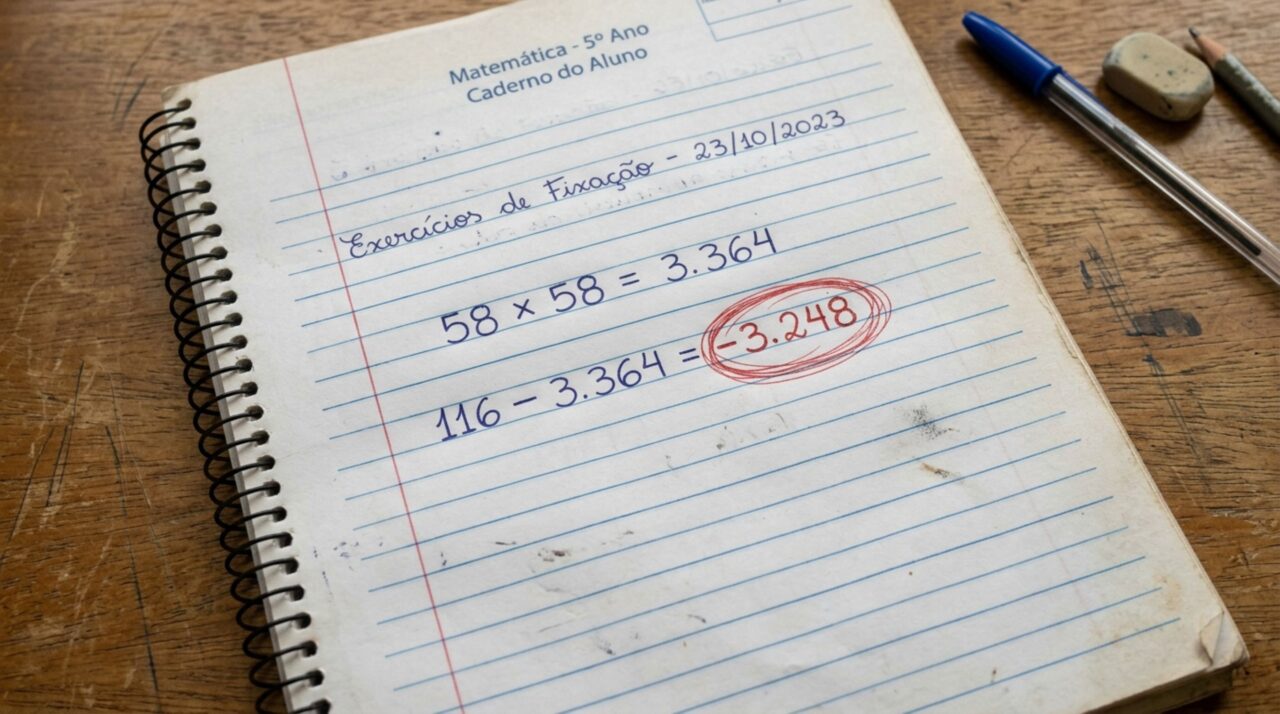 Matemática - 5º Ano
Caderno do Aluno
Exercícios de Fixação - 23/10/2023
58 × 58 = 3.364
116 - 3.364 = -3.248